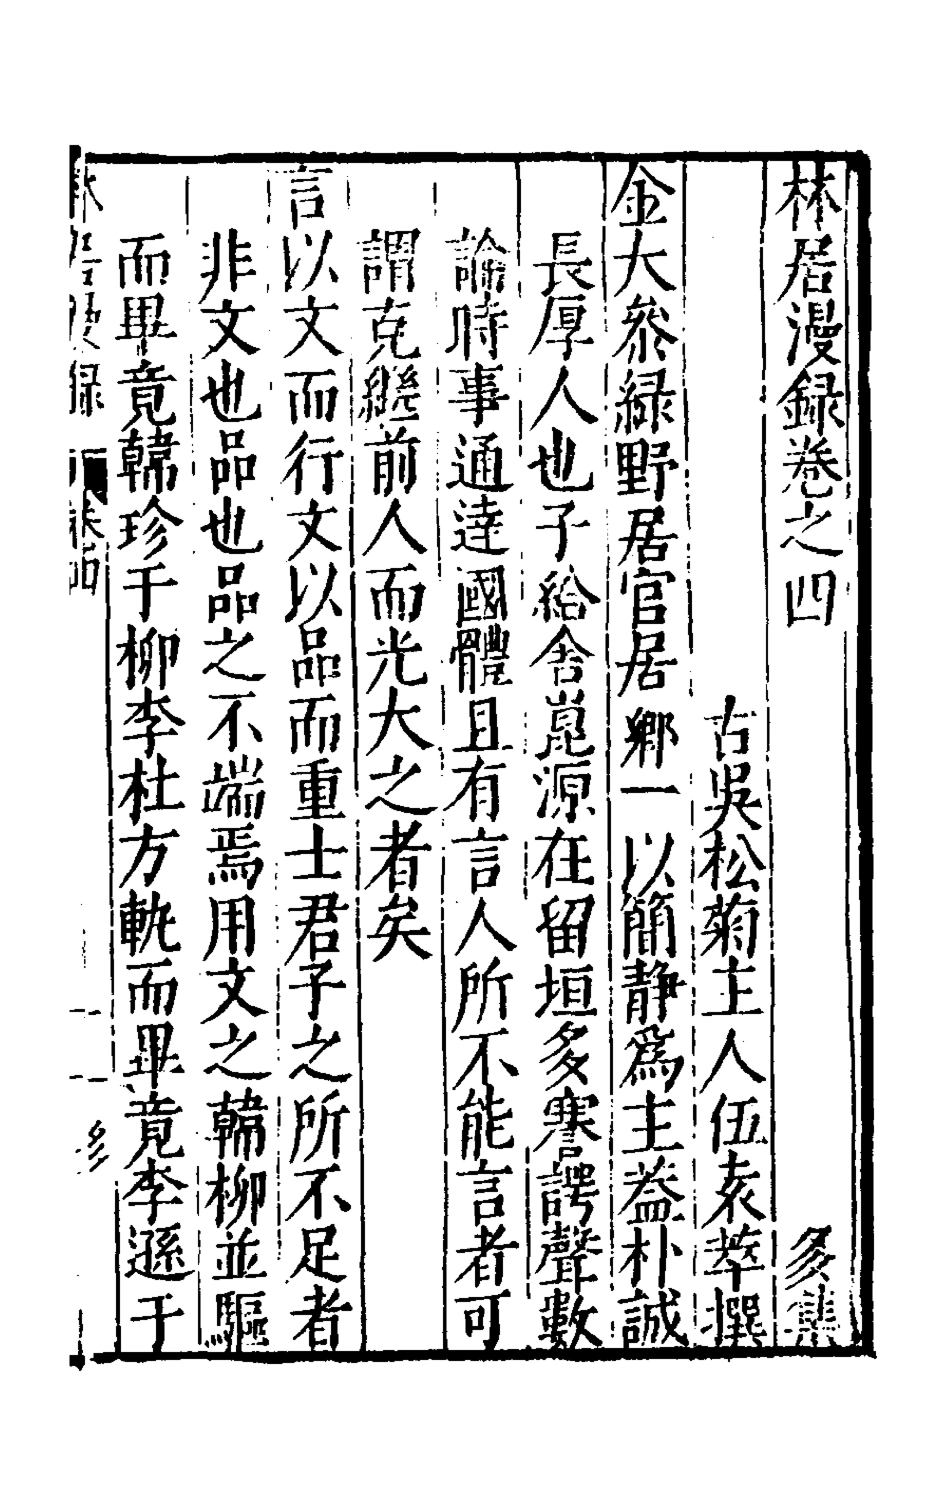 林居漫録卷之四　多集
古吳松菊主人伍袁萃撰
金大叅緑野居官居鄉一以簡静爲主葢朴誠
長厚人也子給舍崑源在留垣多謇諤聲數
論時事通達國體且有言人所不能言者可
謂克繼前人而光大之者矣
言以文而行文以品而重士君子之所不足者
非文也品也品之不端焉用文之韓柳並驅
而畢竟韓珍于柳李杜方軌而畢竟李遜于